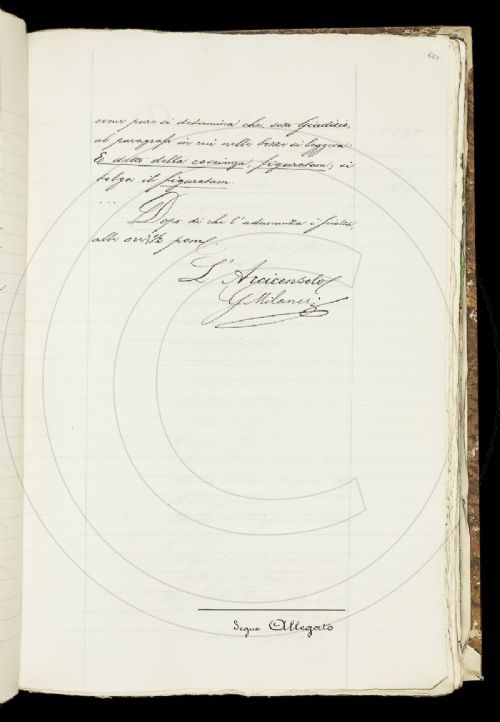 come pure si determina che, sotto Giudizio,
al paragrafo in cui nelle bozze si leggeva:
E detto della coscienza, figuratam, si
tolga il figuratam.
....
Dopo di che l'adunanza è finita,
alle ore 3½ pom.
L'Arciconsolo
G Milanesi
Segue Allegato